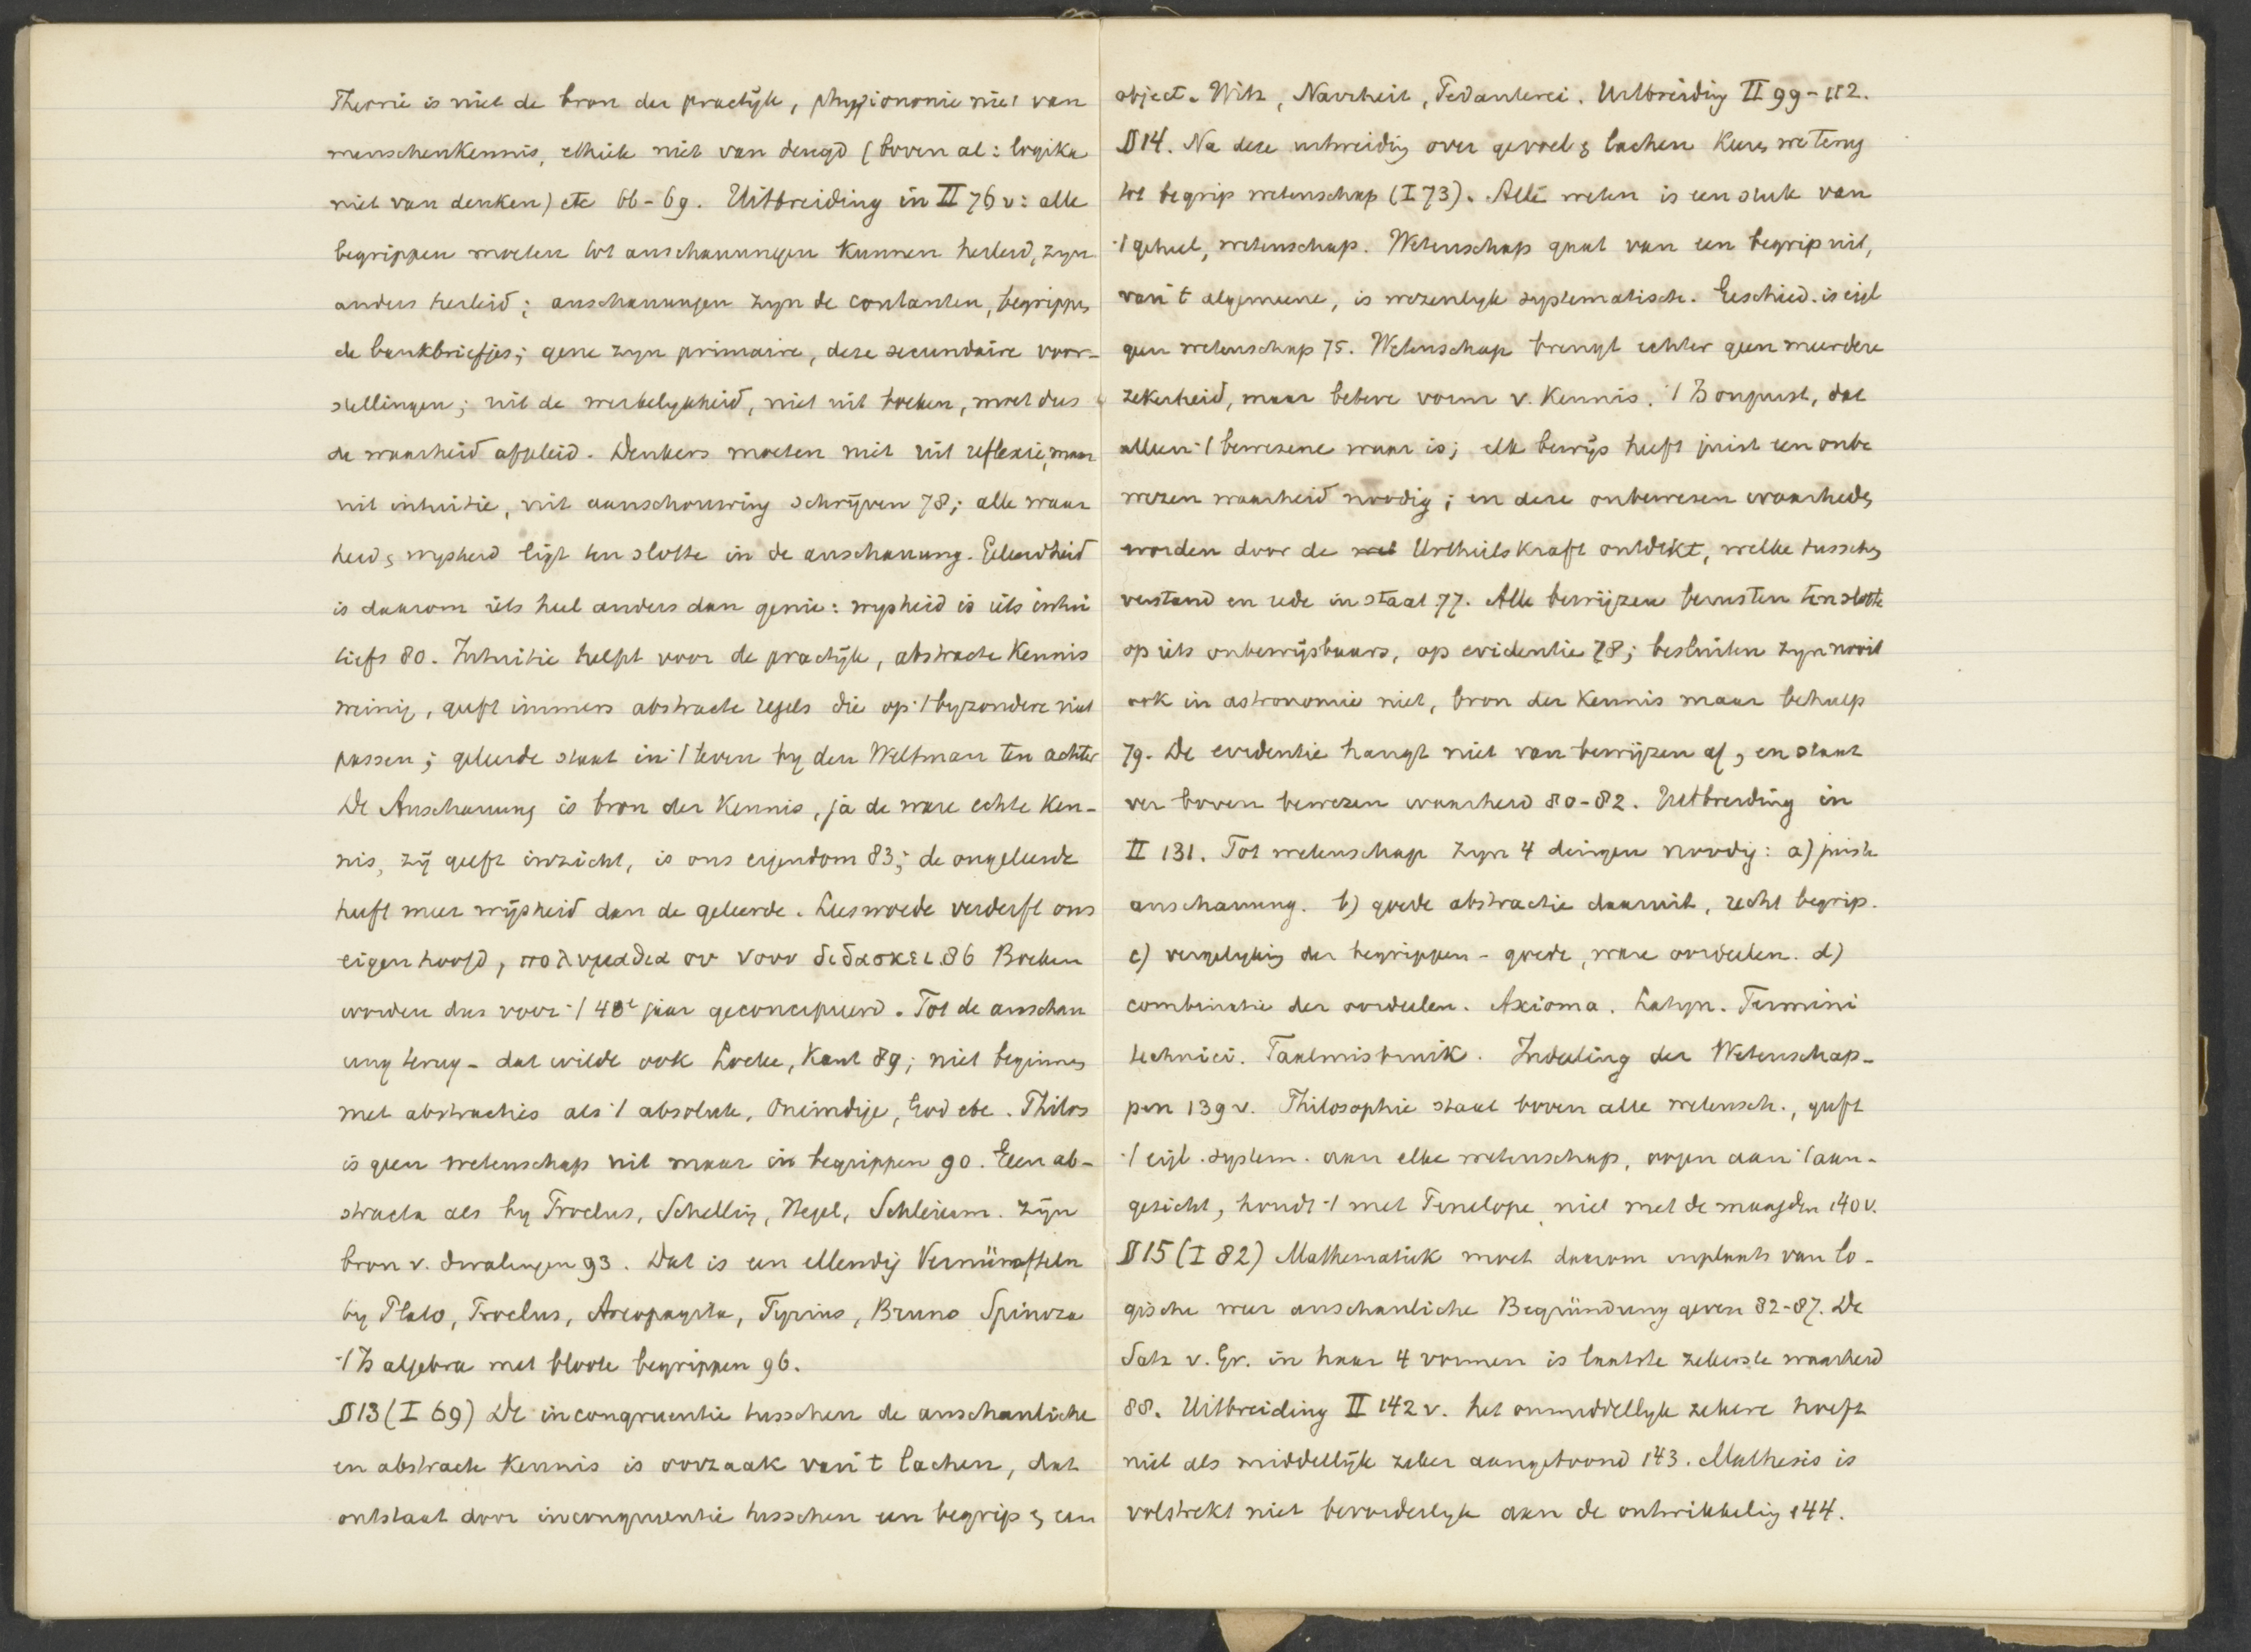 Theorie is niet de bron der practijk, physionomie niet van
menschenkennis, ethiek niet van deugd (boven al: logika
niet van denken) etc 66-69. Uitbreiding in II 76 v: alle
begrippen moeten tot anschauungen kunnen herleid, zyn
anders herleid; anschauungen zyn de contanten, begrippen
de bankbriefjes; gene zyn primaire, deze secundaire voor-
stellingen; uit de werkelykheid, niet uit boeken, moet dus
de waarheid afgeleid. Denkers moeten niet uit reflexie, maar
uit intuitie, uit aanschouwing schrijven 78; alle waar
heid & wysheid ligt ten slotte in de anschauung. Geleerdheid
is daarom iets heel anders dan genie: wysheid is iets intui
tiefs 80. Intuitie helpt voor de practijk, abstracte kennis
weinig, geeft immers abstracte regels die op 't byzondere niet
passen; geleerde staat in 't leven by den Weltman ten achter
De Anschauung is bron der kennis, ja de ware echte ken-
nis, zij geeft inzicht, is ons eigendom 83; de ongeleerde
heeft meer wijsheid dan de geleerde. Leeswoede verderft ons
eigen hoofd, πολυμαθια ου νοον διδασκει 86 Boeken
worden dus voor 't 40e jaar geconcipieerd. Tot de anschau
ung terug - dat wilde ook Locke, Kant 89; niet beginnen
met abstracties als 't absolute, Oneindige, God etc. Philos
is geen wetenschap uit maar in begrippen 90. Zeer ab-
stracta als by Proclus, Schelling, Hegel, Schleierm. zijn
bron v. dwalingen 93. Dat is een ellendig Vernünfteln
by Plato, Proclus, Areopagita, Tyrius, Bruno Spinoza
't Is algebra met bloote begrippen 96.
§ 13 (I 69) De incongruentie tusschen de anschauliche
en abstracte kennis is oorzaak van 't lachen, dat
ontstaat door incongruentie tusschen een begrip & een
object. Witz, Narrheit, Pedanterei. Uitbreiding II 99-112.
§ 14. Na deze uitweiding over gevoel & lachen keeren we terug
tot begrip wetenschap (I 73). Alle weten is een stuk van
't geheel, wetenschap. Wetenschap gaat van een begrip uit,
van 't algemeene, is wezenlyk systematisch. Geschied. is eigl
geen wetenschap 75. Wetenschap brengt echter geen meerdere
zekerheid, maar betere vorm v. kennis. 't Is onjuist, dat
alleen 't bewezene waar is; elk bewijs heeft juist een onbe
wezen waarheid noodig; en deze onbewezen waarheden
worden door de Urtheilskraft ontdekt, welke tusschen
verstand en rede in staat 77. Alle bewijzen berusten ten slotte
op iets onbewijsbaars, op evidentie 78; besluiten zyn nooit
ook in astronomie niet, bron der kennis maar behulp
79. De evidentie hangt niet van bewijzen af, en staat
ver boven bewezen waarheid 80-82. Uitbreiding in
II 131. Tot wetenschap zyn 4 dingen noodig: a) juiste
anschauung. b) goede abstractie daaruit, recht begrip.
c) vergelyking der begrippen - goede, ware oordeelen. d)
combinatie der oordeelen. Axioma. Latyn. Termini
technici. Taalmisbruik. Indeeling der Wetenschap-
pen 139 v. Philosophie staat boven alle wetensch., geeft
't eigl. system. aan elke wetenschap, oogen aan 't aan-
gezicht, houdt 't met Penelope, niet met de maagden 140 v.
§ 15 (I 82) Mathematiek moet daarom inplaats van lo-
gische weer anschauliche Begründung geven 82-87. De
Satz v. Gr. in haar 4 vormen is laatste zekerste waarheid
88. Uitbreiding II 142 v. het onmiddellyk zekere hoeft
niet als middellijk zeker aangetoond 143. Mathesis is
volstrekt niet bevorderlyk aan de ontwikkeling 144.